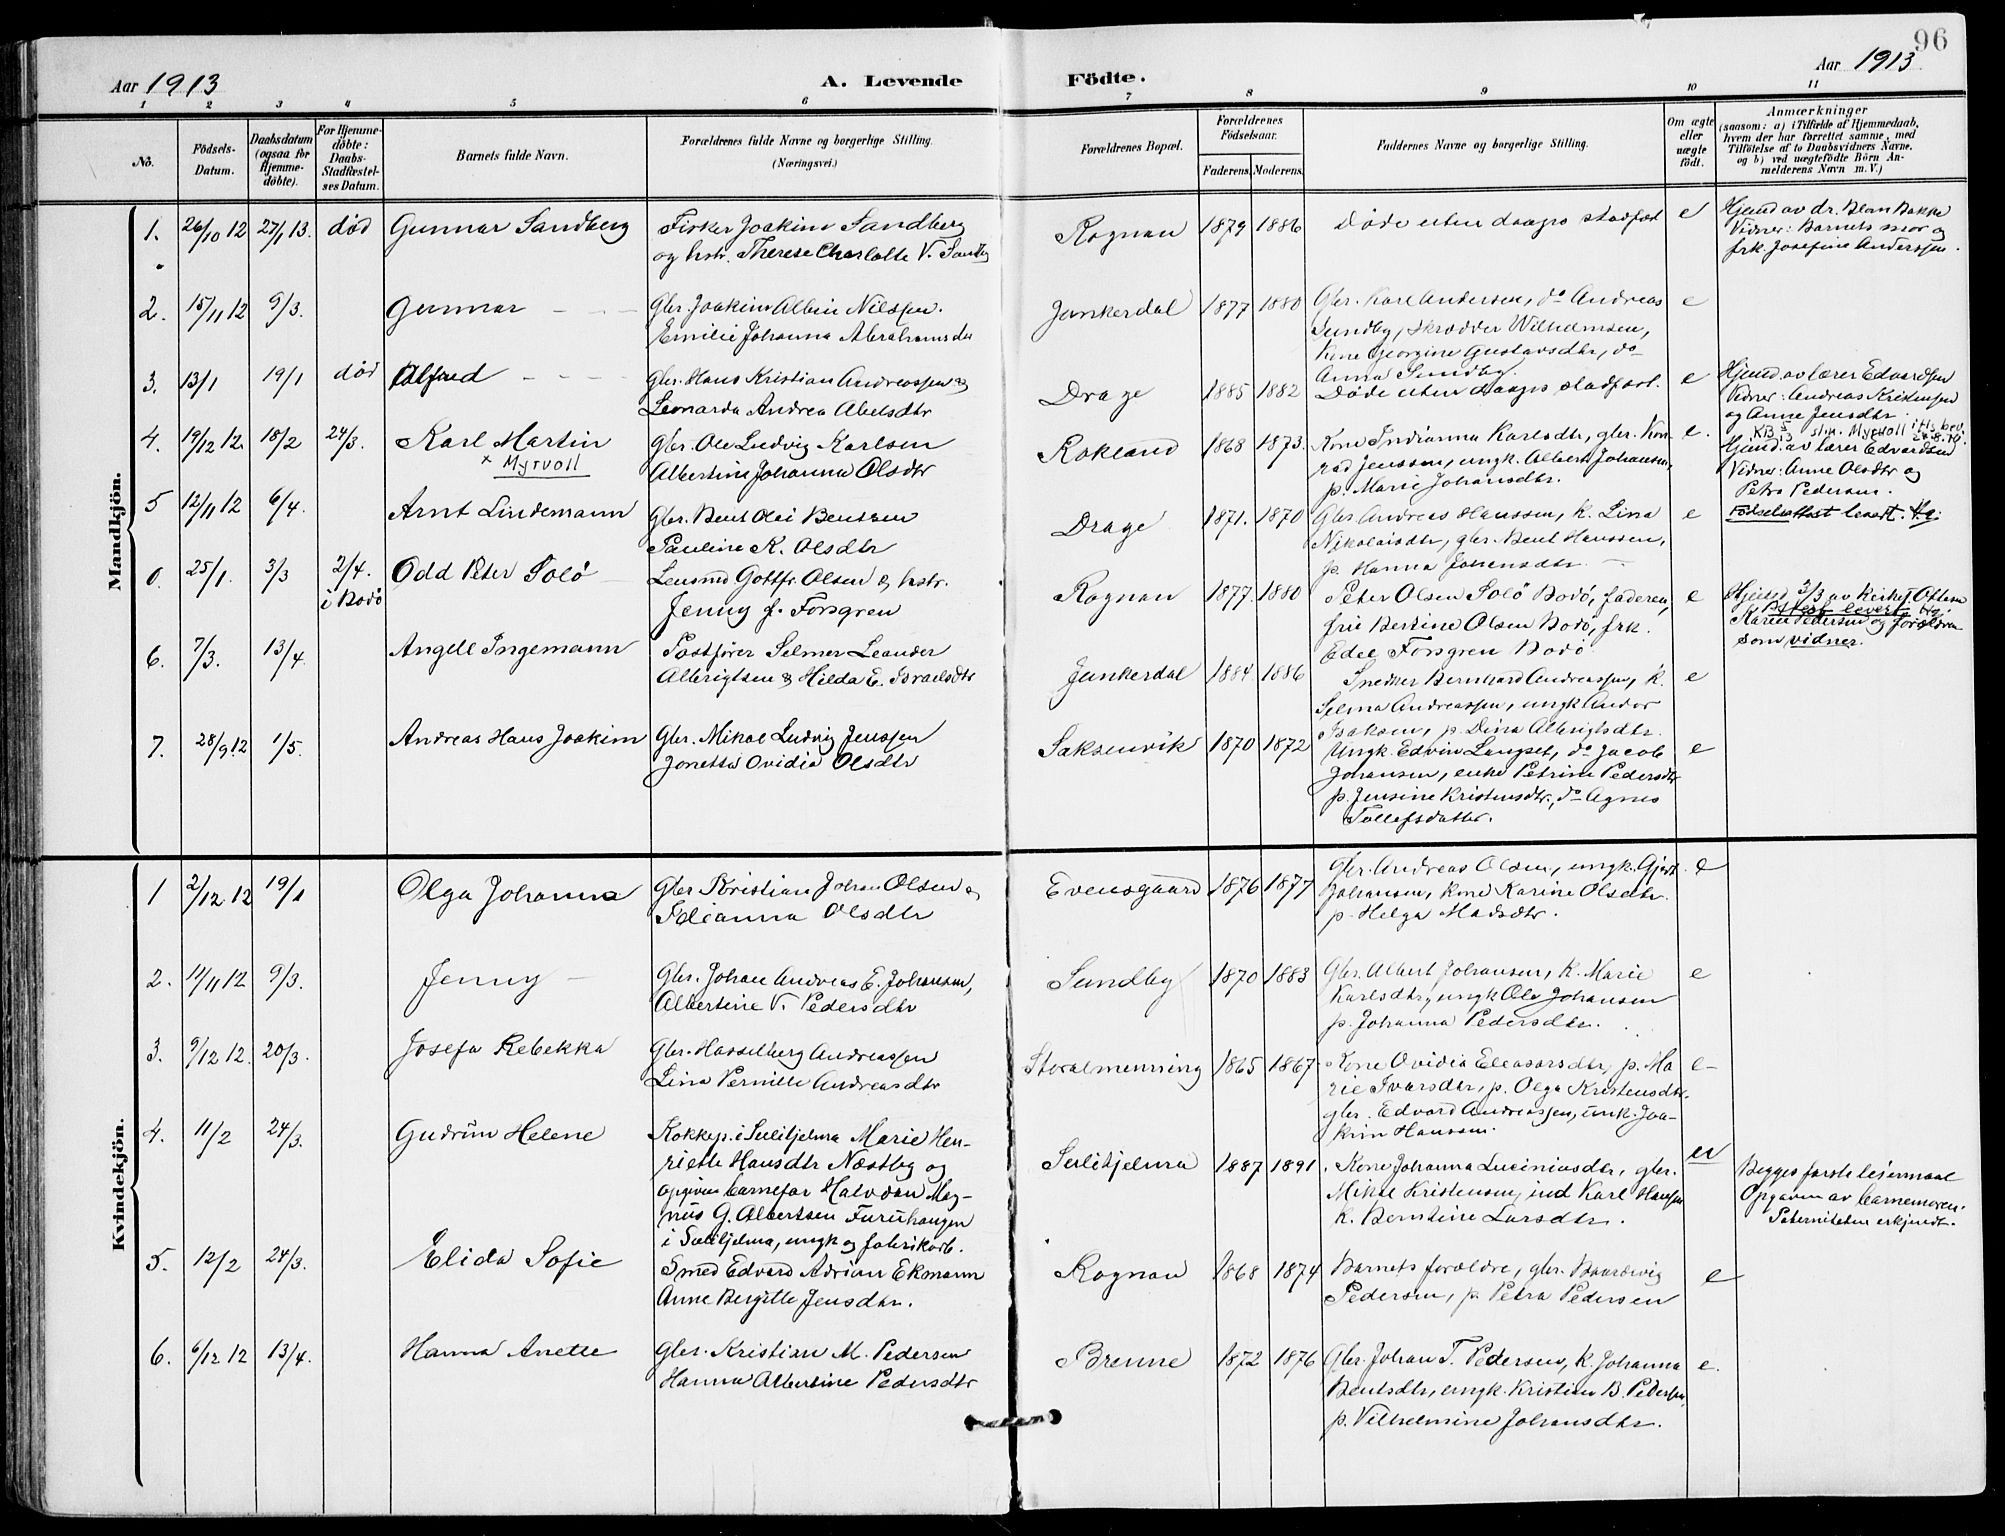 96
Aar 1913
A. Levende Födte.
Aar 1913
1 2 3 4 5 6 7 8 9 10 11
No.
Födsels-
Datum.
Daabsdatum
(ogsaa for
Hjemme-
döbte).
For Hjemme-
döbte:
Daabs-
Stadfæstel-
ses Datum.
Barnets fulde Navn.
Forældrenes fulde Navne og borgerlige Stilling.
(Næringsvei.)
Forældrenes Bopæl.
Forældrenes
Födselsaar.
Faderens. Moderens.
Faddernes Navne og borgerlige Stilling.
Om ægte
eller
uægte
født.
Anmærkninger
(saasom: a) i Tilfælde af Hjemmedaab,
hvem der har forrettet samme, med
Tilföielse af to Daabsvidners Navne,
og b) ved uægtefödte Börn An-
melderens Navn m. V.)
Mandkjön.
1. 26/10 12 27/1 13. død Gunnar Sandberg
Fisker Joakim Sandberg
og hstr. Therese Charlotte V. Sandbg
Rognan 1879 1886
Døde uten daaps stadfæst
e
Hjemd av dr. Blom Bakke
Vidner: Barnets mor og
frk. Josefine Anderssen.
2. 15/11 12 9/3. Gunnar
Gbr. Joakim Albin Nilssen.
Emilie Johanna Abrahamsdtr
Junkerdal 1877 1880
Gbr. Karl Andersen, do Andreas
Sundby, skrædder Wilhelmsen,
Kone Georgine Gustavsdtr, do
Anna Sundby.
e
3. 13/1 19/1 død Alfred
Gbr. Hans Kristian Andreassen &
Leonarda Andrea Abelsdtr
Drage 1885 1882
Døde uten daaps stadfæst.
e
Hjemd. av lærer Edvardsen
Vidner: Andreas Kristensen
og Anne Jensdtr.
4. 19/12 12. 18/2 24/3. Karl Martin
x Myrvoll
Gbr. Ole Ludvig Karlsen
Albertine Johanna Olsdtr
Rokland 1868 1873.
Kone Indianna Karlsdtr, gbr. Kon-
rad Jenssen, ungk. Albert Johansen,
p. Marie Johansdtr.
e.
sln. Myrvoll
Hjemd. av lærer Edvardsen
Vidner: Anne Olsdtr og
Petra Pedersen.
5 12/11 12 6/4. Arnt Lindemann
Gbr. Bent Olai Bentsen
Pauline K. Olsdtr
Drage 1871. 1870
Gbr. Andreas Hanssen, k. Lina
Nikolaisdtr, gbr. Bent Hanssen,
p. Hanna Johansdtr.
e
Fødselsattest levert. Hg.
0. 25/1. 3/3 2/4. i Bodø Odd Peter Solö
Lensmd Gottfr. Olsen & hstr.
Jenny f. Forsgren
Rognan 1877. 1880
Peter Olsen Solö Bodø, faderen,
frie Bertine Olsen Bodø, frk.
Edel Forsgren Bodø
e
Hjemd 3/3 av kirkesg. Ottem
Attest levert Hg.
Karen Pedersen og forældren
som vidner.
6. 7/3. 13/4. Angell Ingemann
Postfører Selmer Leander
Albrigtsen & Hilda E. Israelsdtr
Junkerdal 1884 1886
Snedker Bernhard Andreassen, k.
Selma Andreassen, ungk Andor
Isaksen, p. Dina Albrigtsdtr.
e
7. 28/9 12 1/5. Andreas Hans Joakim
Gbr. Mikal Ludvig Jenssen
Jonetta Ovidia Olsdtr
Saksenvik 1870 1872
Ungk. Edvin Langset, do Jacob
Johansen, enke Petrine Pedersdtr
p. Jensine Kristensdtr., do Agnes
Tollefsdatter.
e
Kvindekjön.
1 2/12 12 19/1 Olga Johanna
Gbr Kristian Johan Olsen &
Idianna Olsdtr
Evensgaard 1876 1877
Gbr. Andreas Olsen, ungk. Gjert
Johansen, kone Karine Olsdtr.
p. Helga Madsdtr.
e
2. 11/11 12 9/3. Jenny
Gbr. Johan Andreas E. Johansen,
Albertine V. Pedersdtr
Sundby 1870 1883
Gbr. Albert Johansen, k. Marie
Karlsdtr, ungk Ole Johansen
p. Johanna Pedersdtr.
e
3. 9/12 12. 20/3. Josefa Rebekka
Gbr. Hasselberg Andreassen
Lina Pernille Andreasdtr
Storalmenning 1865 1867
Kone Ovidia Eleasarsdtr, p. Ma-
rie Ivarsdtr, p. Olga Kristensdtr.
gbr. Edvard Andreassen, unk. Joa-
kim Hanssen.
e
4. 11/2 24/3. Gudrun Helene
Kokkep. i Sulitjelma Marie Hen-
riette Hansdtr Næstby og
opgiven barnefar Halvdan Mag-
nus G. Albertsen Furuhaugen
i Sulitjelma, ungk og fabrikarb.
Sulitjelma 1887 1891
Kone Johanna Luciniusdtr, gbr.
Mikal Kristensen, ind Karl Hansen
k. Berntine Larsdtr.
Begges første leiermaal
Opgaven av barnemoren.
Paterniteten erkjendt.
5. 12/2 24/3. Elida Sofie
Smed Edvard Adrian Ekmann
Anne Bergitte Jensdtr.
Rognan 1868 1874
Barnets forældre, gbr. Baardvig
Pedersen, p. Petra Pedersen
e
6. 6/12 12 13/4. Hanna Anette
Gbr. Kristian M. Pedersen
Hanna Albertine Pedersdtr
Brenne 1872 1876
Gbr. Johan T. Pedersen, k. Johanna
Bentsdtr, ungk. Kristian B. Pedersen,
p. Vilhelmine Johansdtr.
e.